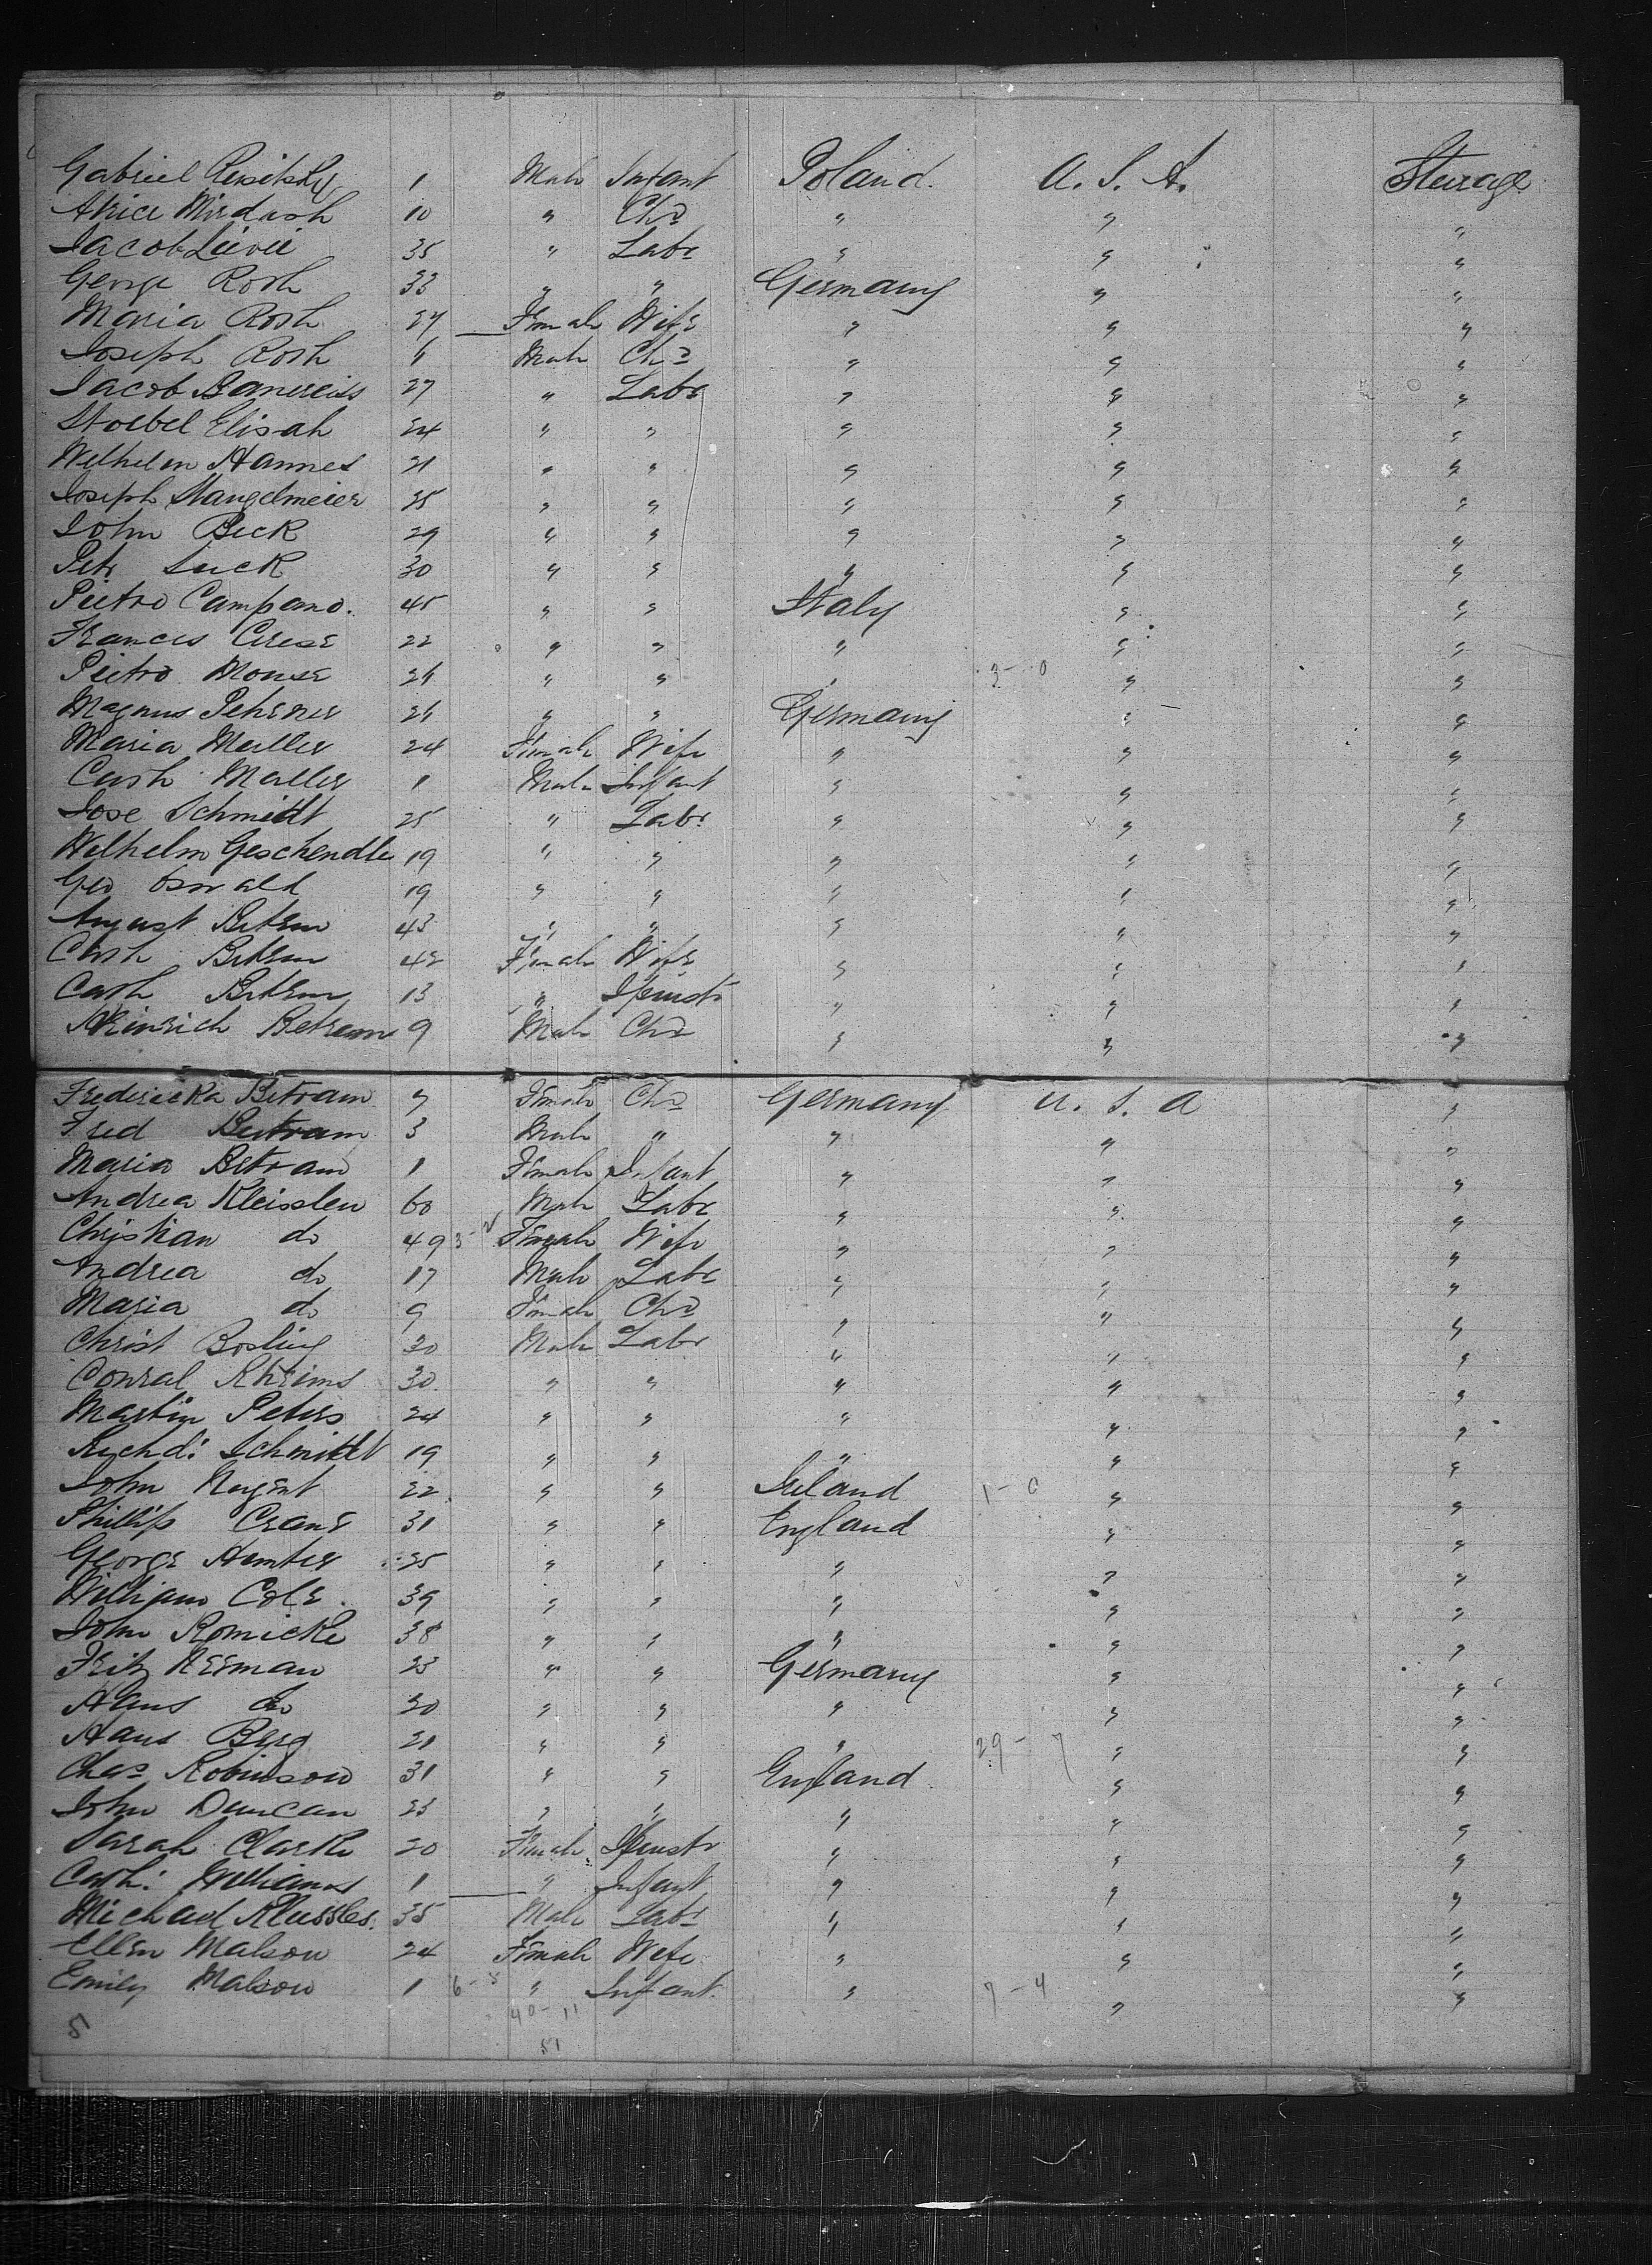 Gabriel 1 Male Infant Poland. U. S. A. Steerage
Mirdash 10 " Chd " " "
Jacob Lievie 35 " Labr " " "
George Rosh 33 " " Germany " "
Maria Rosh 27 Female Wife " " "
Joseph Rosh 6 Male Chd " " "
Jacob 27 " Labr " " "
Stoebel Elisah 24 " " " " "
Wilhelm Hannes 21 " " " " "
Joseph Stangelmeier 25 " " " " "
John Beck 29 " " " " "
Petr Luck 30 " " " " "
Pietro Campano. 45 " " Italy " "
Francis 22 " " " " "
Pietro Mouse 26 " " " 3 - 0 " "
Magnus 26 " " Germany " "
Maria Muller 24 Female Wife " " "
Cash Muller 1 Male Infant " " "
Jose Schmidt 25 " Labr " " "
Wilhelm Geschendle 19 " " " " "
Geo Oswald 19 " " " " "
August 43 " " " " "
Cash 42 Female Wife " " "
Cash 13 " Spinstr " " "
Heinrich Betram 9 Male Chd " " "
Fredericka Betram 7 Female Chd Germany U. S. A "
Fred Betram 3 Male " " " "
Maria Betram 1 Female Infant " " "
Andrea Kleisslen 60 Male Labr " " "
Christian do 49 3 - 2 Female Wife " " "
Andrea do 17 Male Labr " " "
Maria do 9 Female Chd " " "
Christ Bosling 20 Male Labr " " "
Conral Khrims 30 " " " " "
Martin Peters 24 " " " " "
Richd: Schmidt 19 " " " " "
John Nugent 22 " " Ireland 1 - 0 " "
Phillip Crane 31 " " England " "
George Hunter 25 " " " " "
William Cole 39 " " " " "
John Romicke 38 " " " " "
Fritz Herman 23 " " Germany " "
Hans do 20 " " " " "
Hans Berg 21 " " " 29 - 7 " "
Chas Robinson 31 " " England " "
John Duncan 23 " " " " "
Sarah Clarke 20 Female Spinstr " " "
Cath: Williams 1 " Infant " " "
Michael Klussles. 35 Male Labr " " "
Ellen Malson 24 Female Wife " " "
Emily Malson 1 6 - 5 " Infant " 7 - 4 " "
5 40 - 11
51